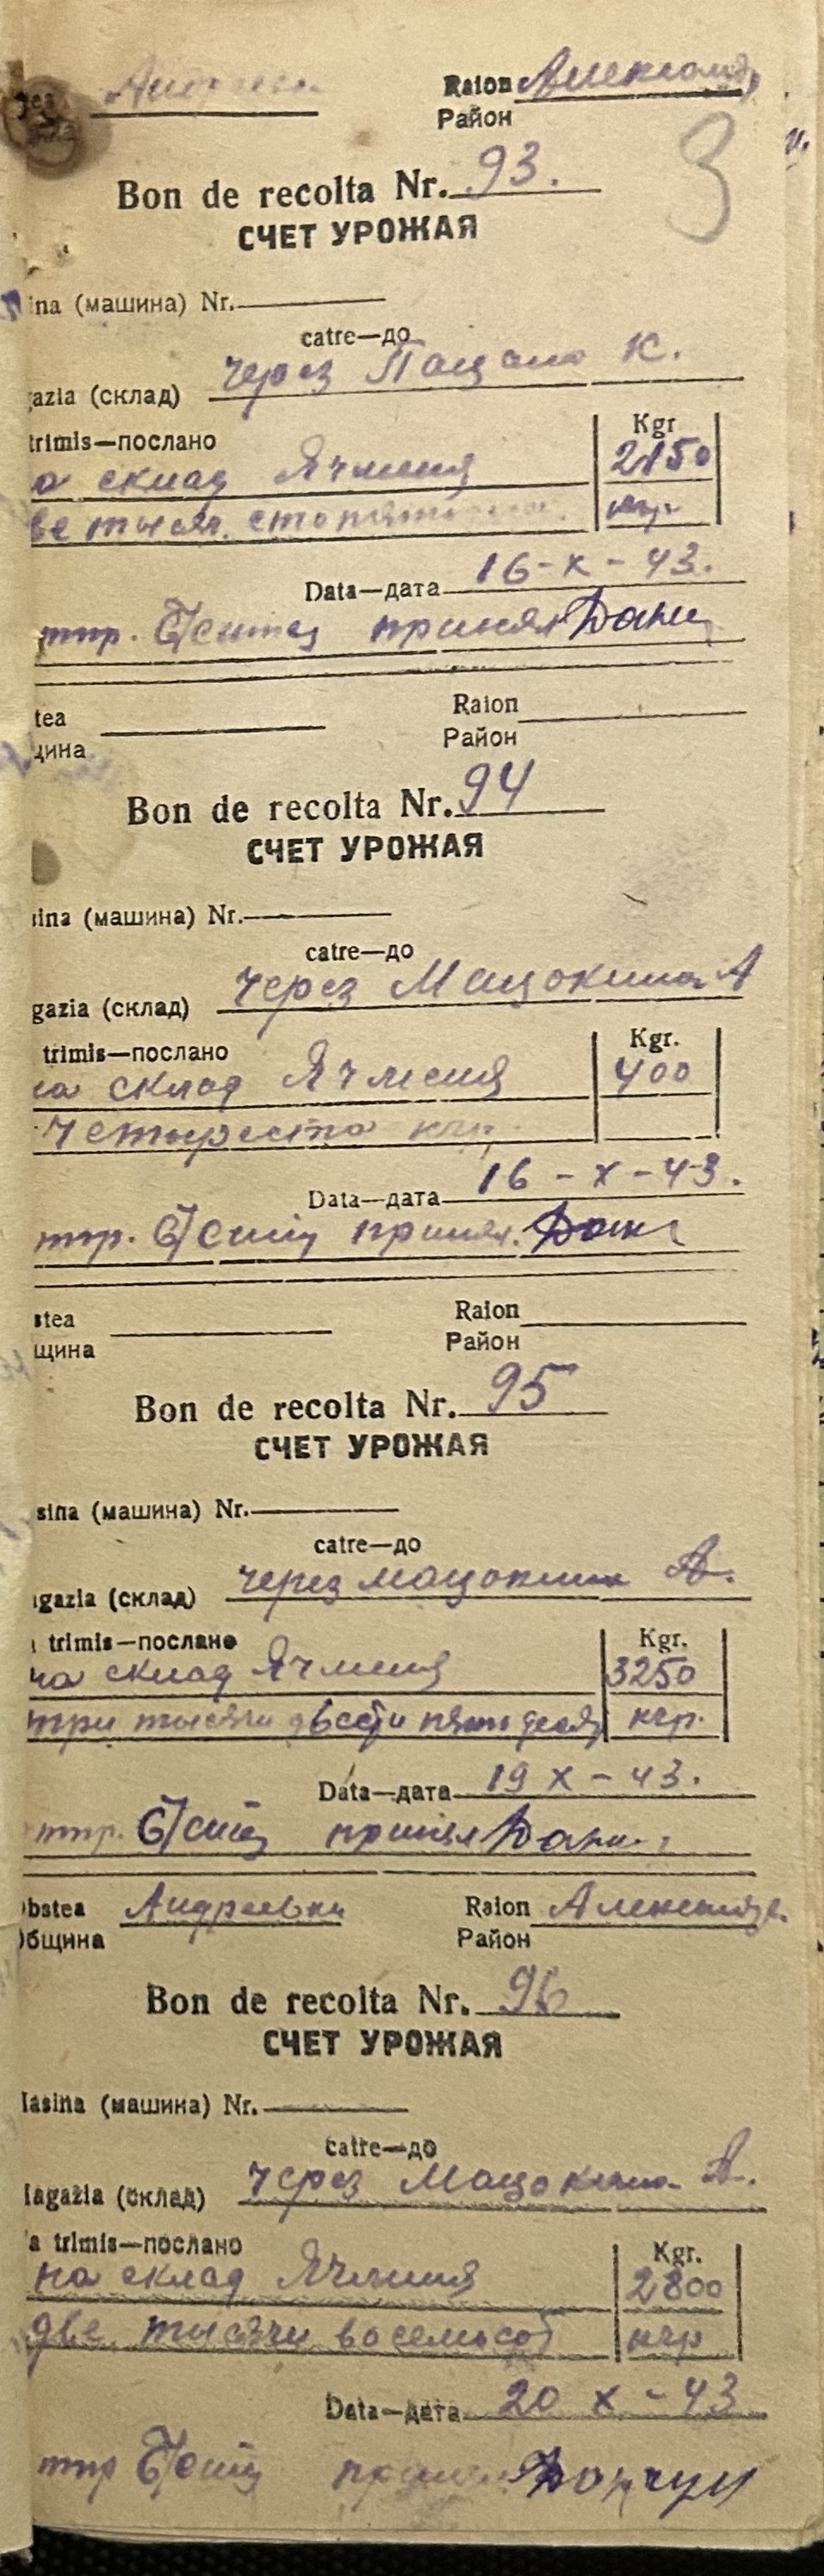 Raion Александ
Район
3
Bon de recolta Nr. 93.
СЧЕТ УРОЖАЯ
ina (машина) Nr.
catre—до
azia (склад) через К.
trimis—послано Kgr
а склад Ячменя 2150
ве тысяч. сто кгр.
Data—дата 16-X-43.
принял
tea Raion
цина Район
Bon de recolta Nr. 94
СЧЕТ УРОЖАЯ
ina (машина) Nr.
catre—до
gazia (склад) через Мацокина А
trimis—послано Kgr.
на склад Ячменя 400
Четыреста кгр.
Data—дата 16-X-43.
принял.
stea Raion
щина Район
Bon de recolta Nr. 95
СЧЕТ УРОЖАЯ
sina (машина) Nr.
catre—до
gazia (склад) через Мацокина А.
trimis—послано Kgr.
на склад Ячменя 3250
три тысячи двести пятьдесят кгр.
Data—дата 19 X-43.
принял
Obstea Андреевка Raion Александр.
Община Район
Bon de recolta Nr. 96
СЧЕТ УРОЖАЯ
Masina (машина) Nr.
catre—до
Magazia (склад) через Мацокина А.
a trimis—послано Kgr.
на склад Ячменя 2800
две тысячи восемьсот кгр
Data—дата 20 X-43